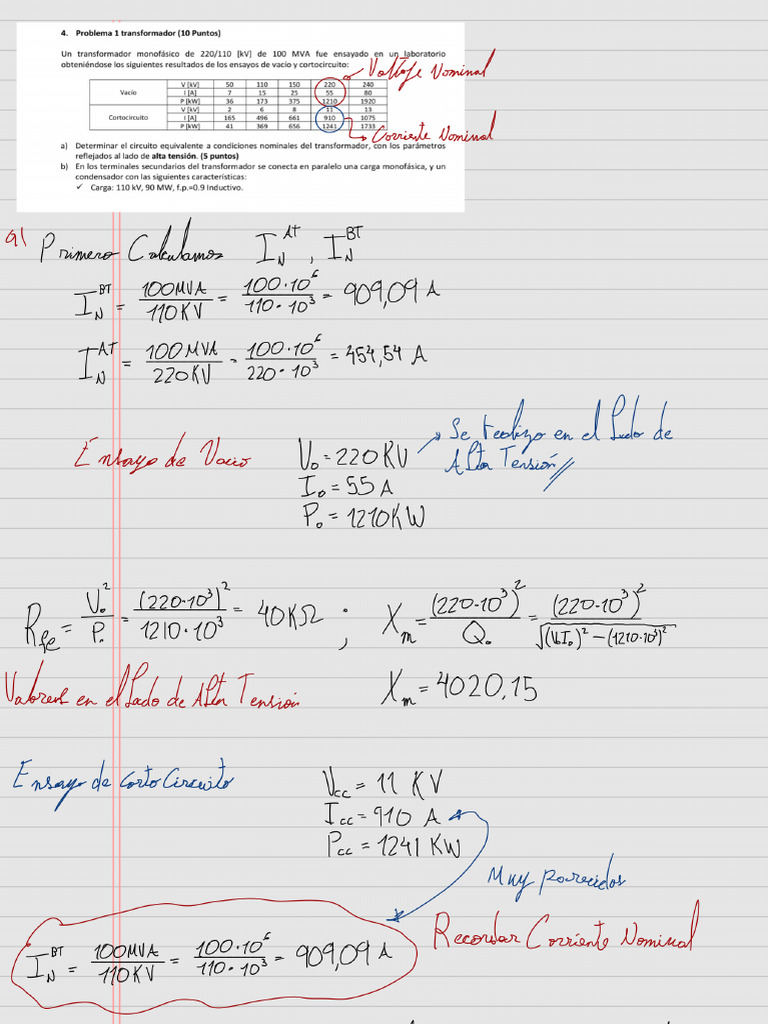 4. Problema 1 transformador (10 Puntos)
Un transformador monofásico de 220/110 [kV] de 100 MVA fue ensayado en un laboratorio
obteniéndose los siguientes resultados de los ensayos de vacío y cortocircuito:
Vacío
V [kV] 50 110 150 220 240
I [A] 7 15 25 55 80
P [kW] 36 173 375 1210 1920
Cortocircuito
V [kV] 2 6 8 11 13
I [A] 165 496 661 910 1075
P [kW] 41 369 656 1241 1733
Voltaje Nominal
Corriente Nominal
a) Determinar el circuito equivalente a condiciones nominales del transformador, con los parámetros
reflejados al lado de alta tensión. (5 puntos)
b) En los terminales secundarios del transformador se conecta en paralelo una carga monofásica, y un
condensador con las siguientes características:
✓ Carga: 110 kV, 90 MW, f.p.=0.9 Inductivo.
a) Primero Calculamos I_N^AT , I_N^BT
I_N^BT = 100MVA/110KV = 100·10^6/110·10^3 = 909,09 A
I_N^AT = 100MVA/220KV = 100·10^6/220·10^3 = 454,54 A
Ensayo de Vacio
V₀ = 220 KV
Se realizo en el Lado de
Alta Tensión //
I₀ = 55 A
P₀ = 1210KW
R_fe = V₀²/P₀ = (220·10³)²/1210·10³ = 40KΩ ; X_m = (220·10³)²/Q₀ = (220·10³)²/√((V₀I₀)² − (1210·10³)²)
Valores en el Lado de Alta Tensión
X_m = 4020,15
Ensayo de CortoCircuito
V_cc = 11 KV
I_cc = 910 A
P_cc = 1241 KW
Muy parecidos
I_N^BT = 100MVA/110KV = 100·10^6/110·10^3 = 909,09 A
Recordar Corriente Nominal